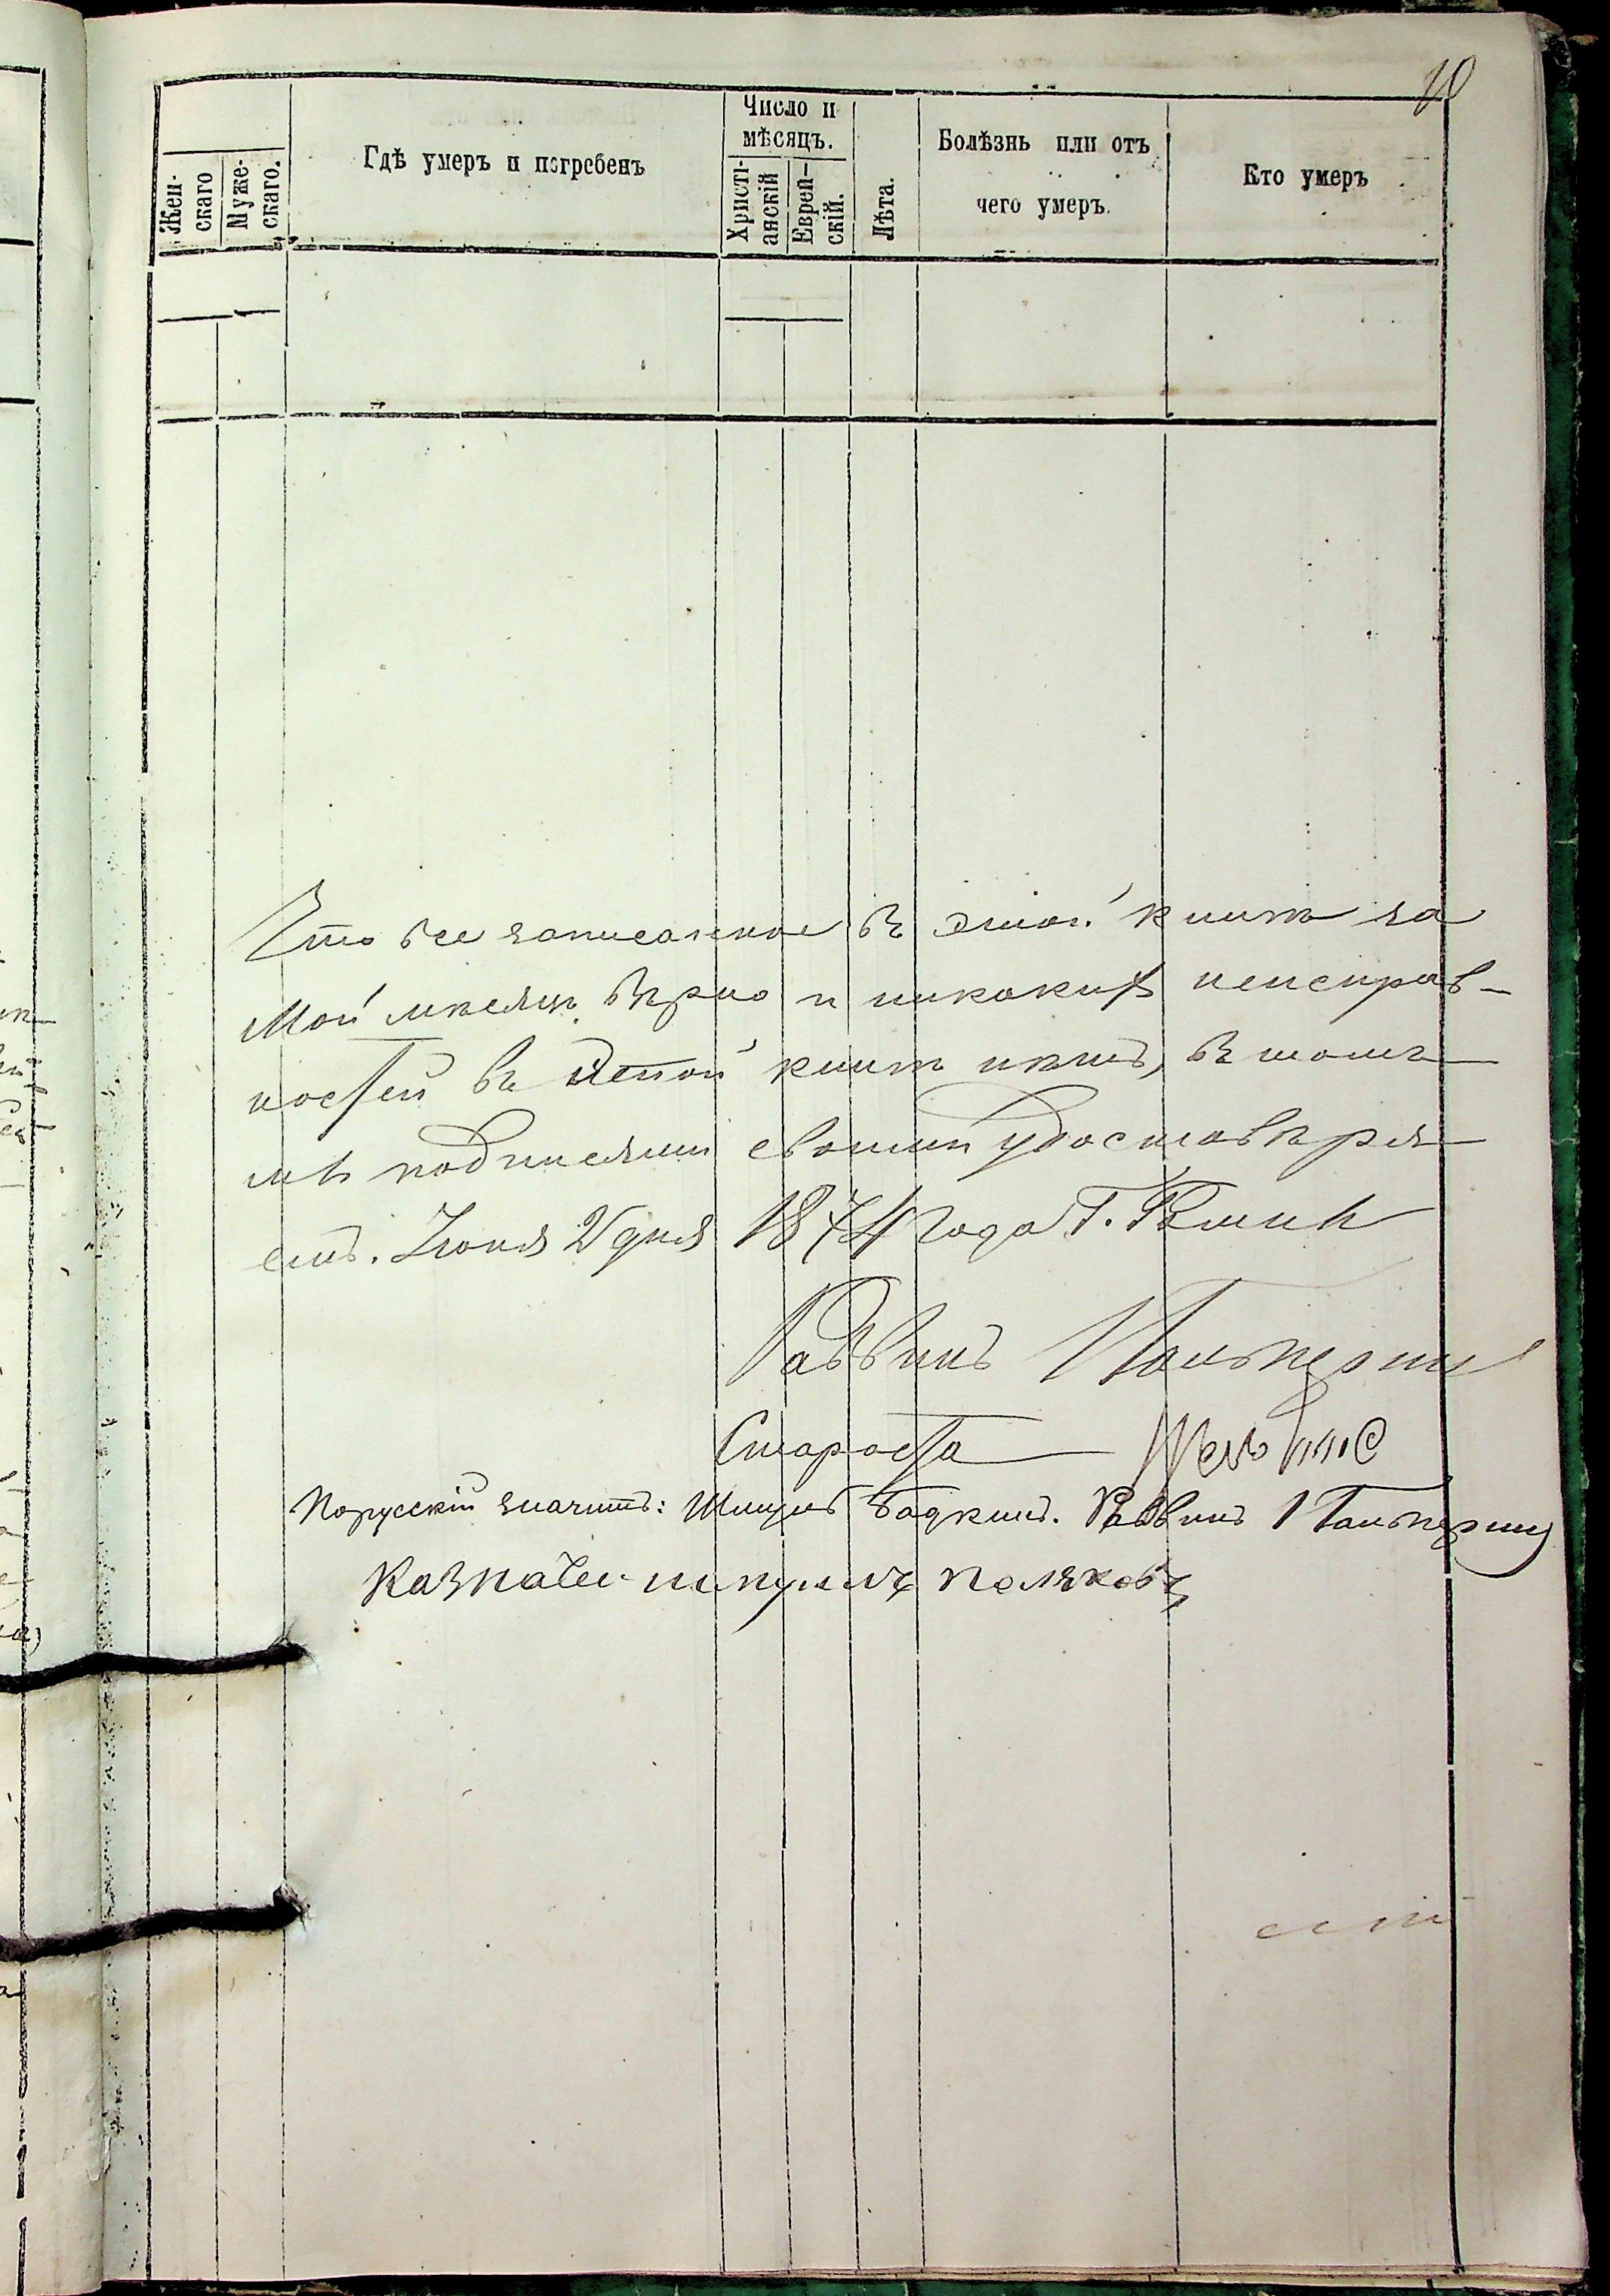 10
Жен-
скаго
Муже-
скаго.
Гдѣ умеръ и погребенъ
Число и
мѣсяцъ.
Христі-
анскій
Еврей-
скій.
Лѣта.
Болѣзнь или отъ
чего умеръ.
Кто умеръ
Что все записанное въ этой книгѣ за
Май мѣсяцъ вѣрно и никакихъ неисправ-
ностей въ этой книгѣ нѣтъ, въ томъ
мы подписями своими удостовѣря-
емъ. Іюня 2 дня 1874 года Г.
Раввинъ Гальпернъ
Староста
Порусскій значитъ: Раввинъ Гальпернъ
Казначей Поляковъ